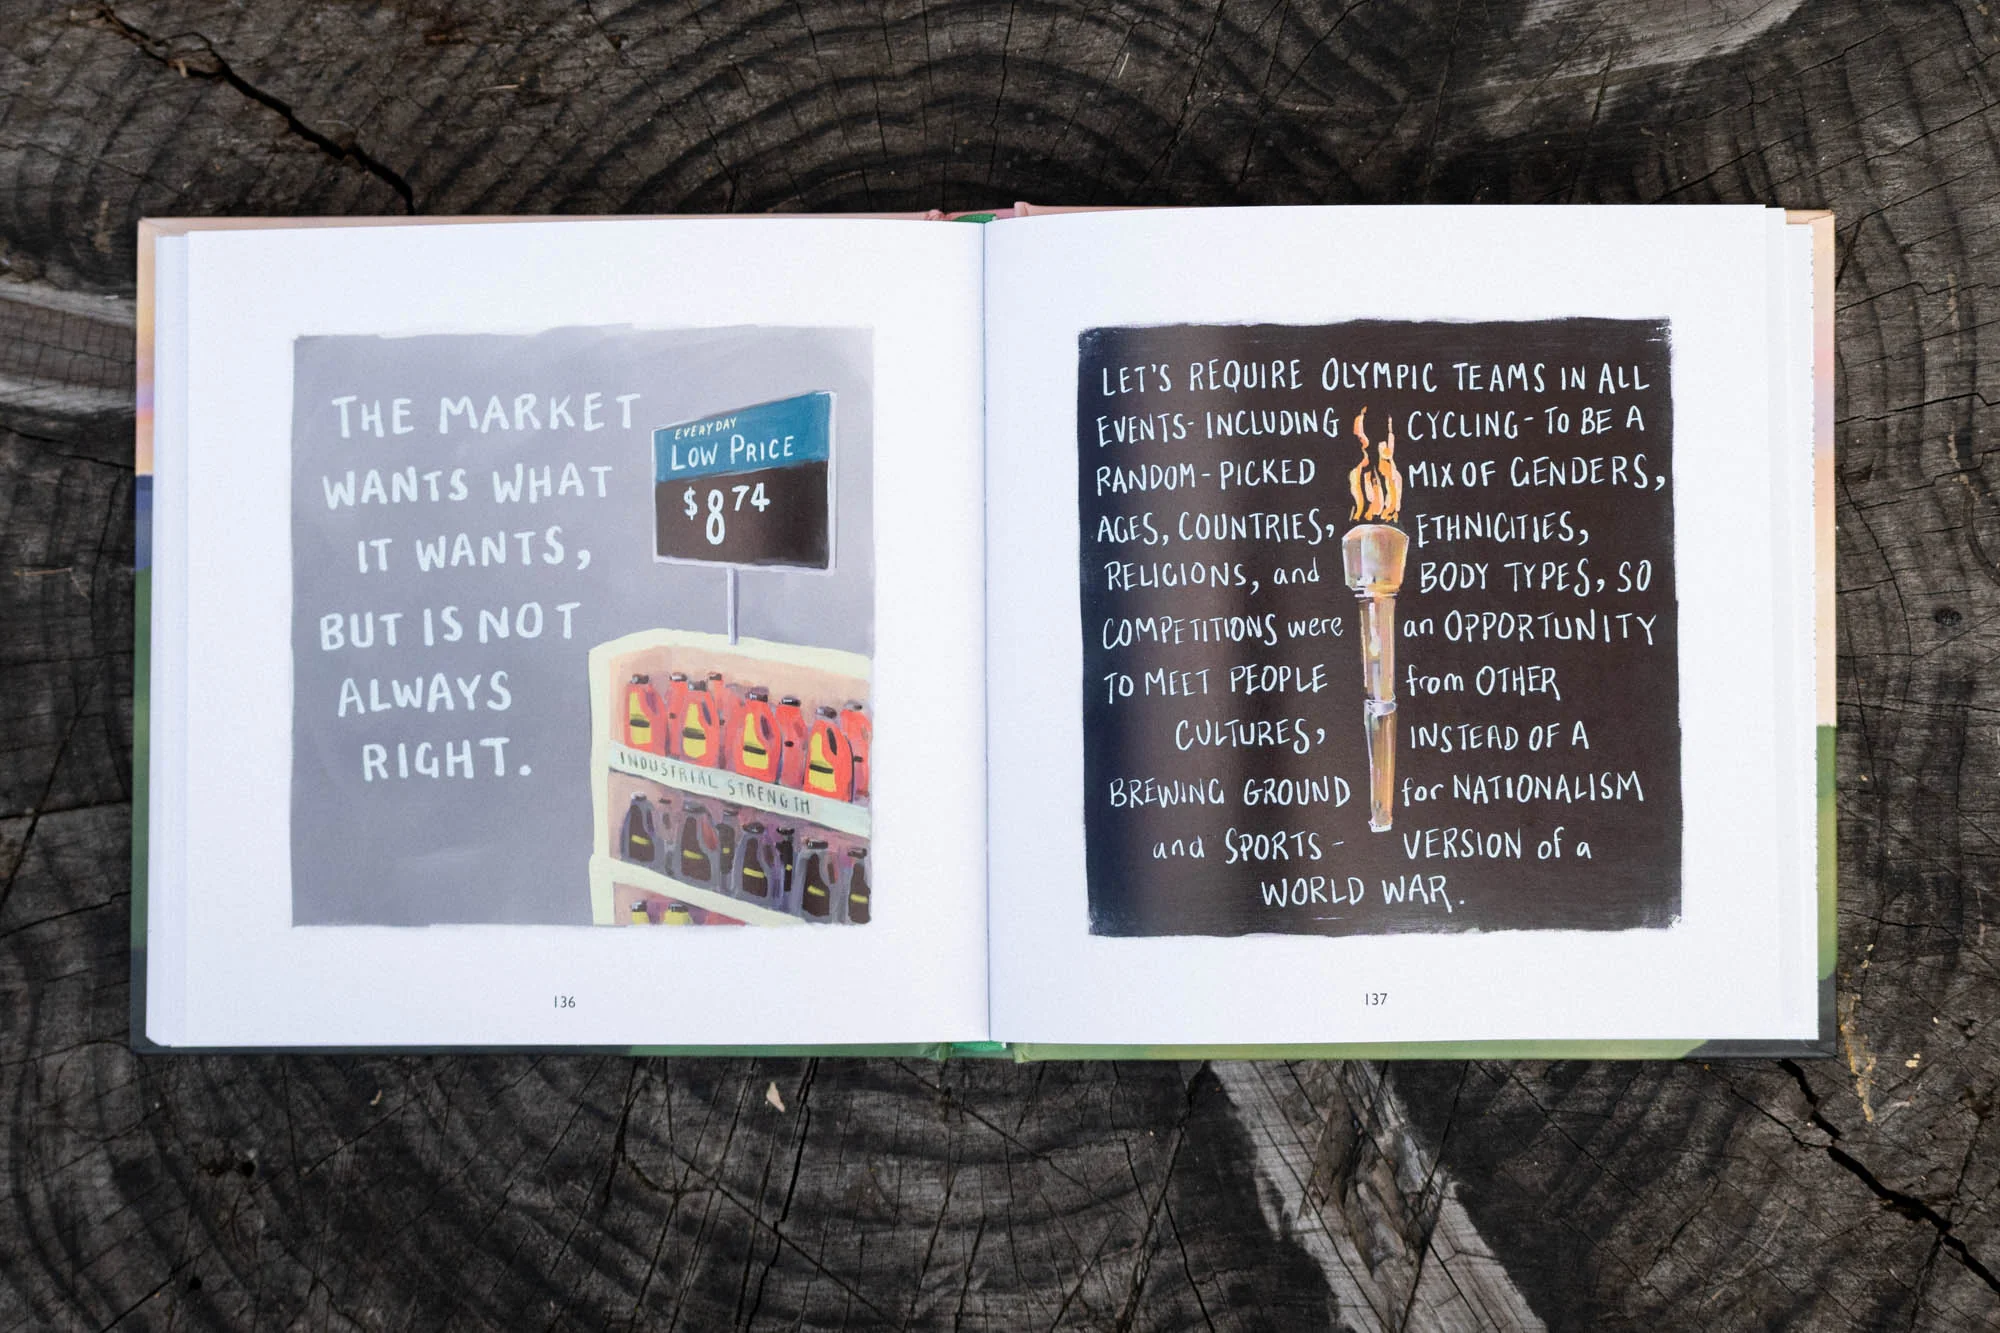 THE MARKET
WANTS WHAT
IT WANTS,
BUT IS NOT
ALWAYS
RIGHT.
EVERYDAY
LOW PRICE
$874
INDUSTRIAL STRENGTH
136
LET'S REQUIRE OLYMPIC TEAMS IN ALL
EVENTS- INCLUDING CYCLING- TO BE A
RANDOM-PICKED MIX OF GENDERS,
AGES, COUNTRIES, ETHNICITIES,
RELIGIONS, and BODY TYPES, SO
COMPETITIONS were an OPPORTUNITY
TO MEET PEOPLE from OTHER
CULTURES, INSTEAD OF A
BREWING GROUND for NATIONALISM
and SPORTS- VERSION of a
WORLD WAR.
137